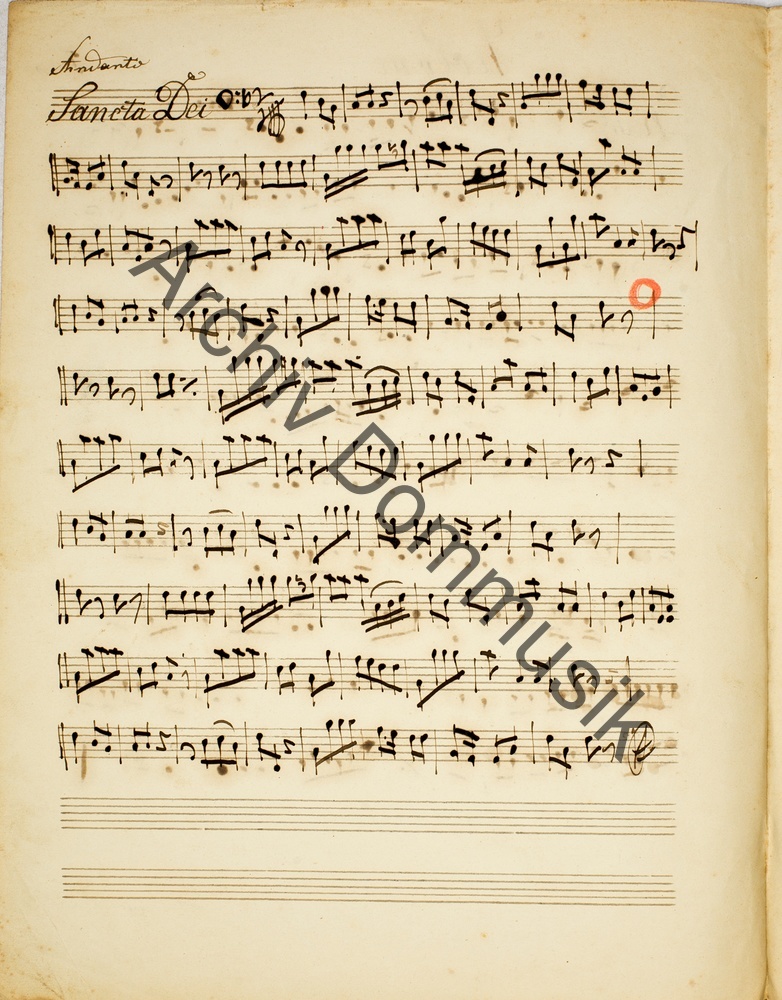 Andante
Sancta Dei
Archiv Dommusik